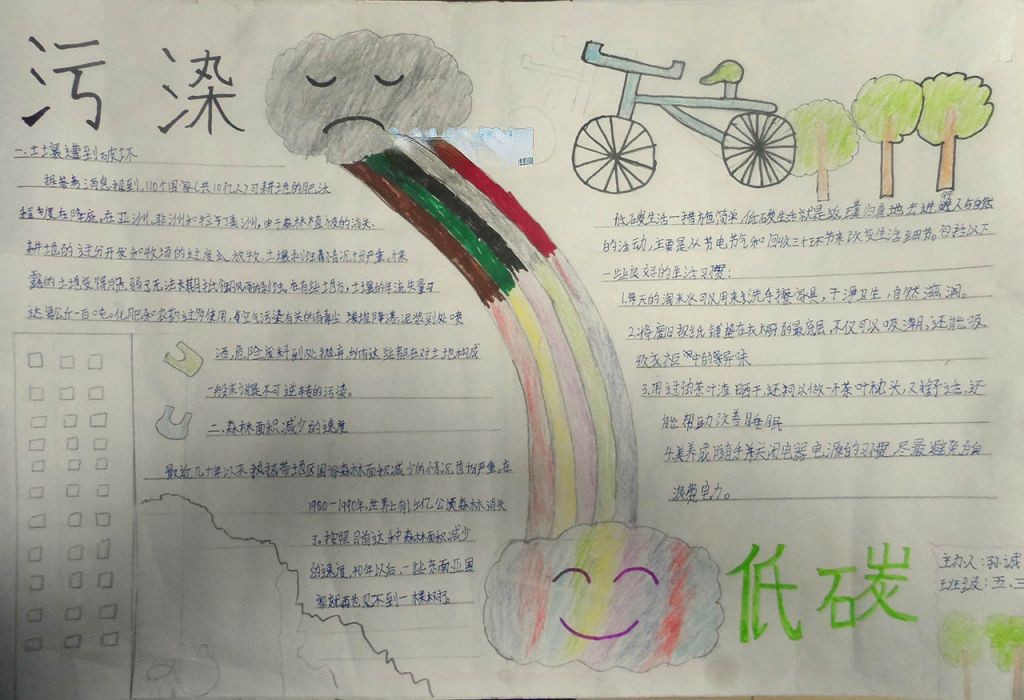 污 染
一.土壤遭到破坏
据芬兰消息报到,110个国家(共10亿人)可耕地的肥沃
程度在降低。在亚洲、非洲和拉丁美洲,由于森林植被的消失、
耕地的过分开发和牧场的过度放牧,土壤剥蚀情况十分严重。裸
露的土地变得脆弱了无法长期抵御风雨的剥蚀。在有些地方,土壤的年流失量可
达每公斤一百吨。化肥和农药过多使用,与空气污染有关的有毒尘埃降落,泥浆到处喷
洒,危险废料到处抛弃,所有这些都在对土地构成
一般来说是不可逆转的污染。
二.森林面积减少的速度
最近几十年以来,热带地区国家森林面积减少的情况也十分严重。在
1980—1990年,世界上有1.5亿公顷森林消失
了。按照目前这种森林面积减少
的速度,40年以后,一些东南亚国
家就再也见不到一棵树了。
低碳生活一措施简单,低碳生活就是返璞归真地去进行人与自然
的活动,主要是从节电节气和回收三个环节来改变生活细节。包括以下
一些良好的生活习惯:
1.每天的淘米水可以用来洗手擦家具,干净卫生,自然滋润。
2.将废旧报纸铺垫在衣橱的最底层,不仅可以吸潮,还能吸
收衣柜中的异味
3.用过的茶叶渣晒干,还可以做一个茶叶枕头,又舒适,还
能帮助改善睡眠
4.要养成随手关闭电器电源的习惯,尽量避免
浪费电力。
低碳
主办人:孙诚
班级:五.三